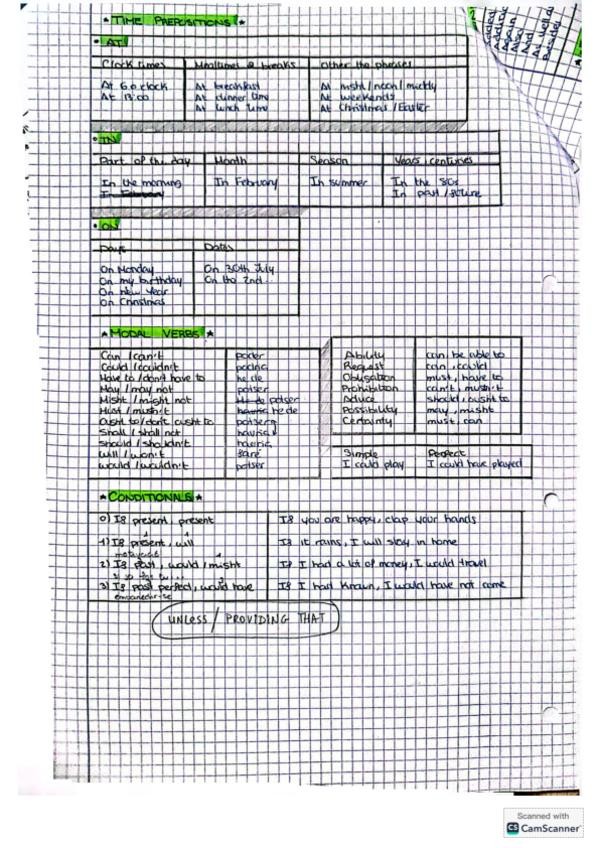 ★ TIME PREPOSITIONS ★
• AT
Clock times Mealtimes & breaks Other the phrases
At 6 o'clock At breakfast At night / noon / midday
At 13:00 At dinner time At weekends
At lunch time At Christmas / Easter
• IN
Part of the day Month Season Years, centuries
In the morning In February In summer In the 80s
In February In past / future
• ON
Days Dates
On Monday On 30th July
On my birthday On the 2nd...
On new year
On Christmas
★ MODAL VERBS ★
Can / can't poder
Could / couldn't podria
Have to / don't have to he de
May / may not potser
Might / might not He de potser
Must / mustn't hauria he de
Ought to / don't ought to potser
Shall / shall not
Should / shouldn't hauria
Will / won't faré
Would / wouldn't potser
Ability can, be able to
Request can, could
Obligation must, have to
Prohibition can't, mustn't
Advice should, ought to
Possibility may, might
Certainty must, can
Simple Perfect
I could play I could have played
★ CONDITIONALS ★
0) If present, present If you are happy, clap your hands
1) If present, will If it rains, I will stay in home
2) If past, would / might If I had a lot of money, I would travel
3) If past perfect, would have If I had known, I would have not come
UNLESS / PROVIDING THAT
Again
Also
And
As well as
Besides
Scanned with
CS CamScanner